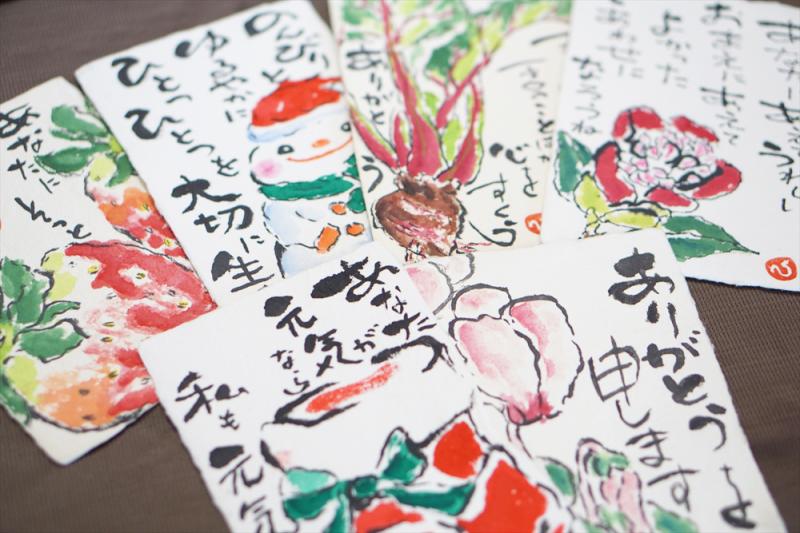 あなたに
そっと
のんびりと
ゆるやかに
ひとつひとつを
大切に生
ありがとう
心を
すくう
あなたにあえて
うれし
よかった
しあわせに
なろうね
ひ
あなたが
元気なら
私も元気
ありがとうを
申します